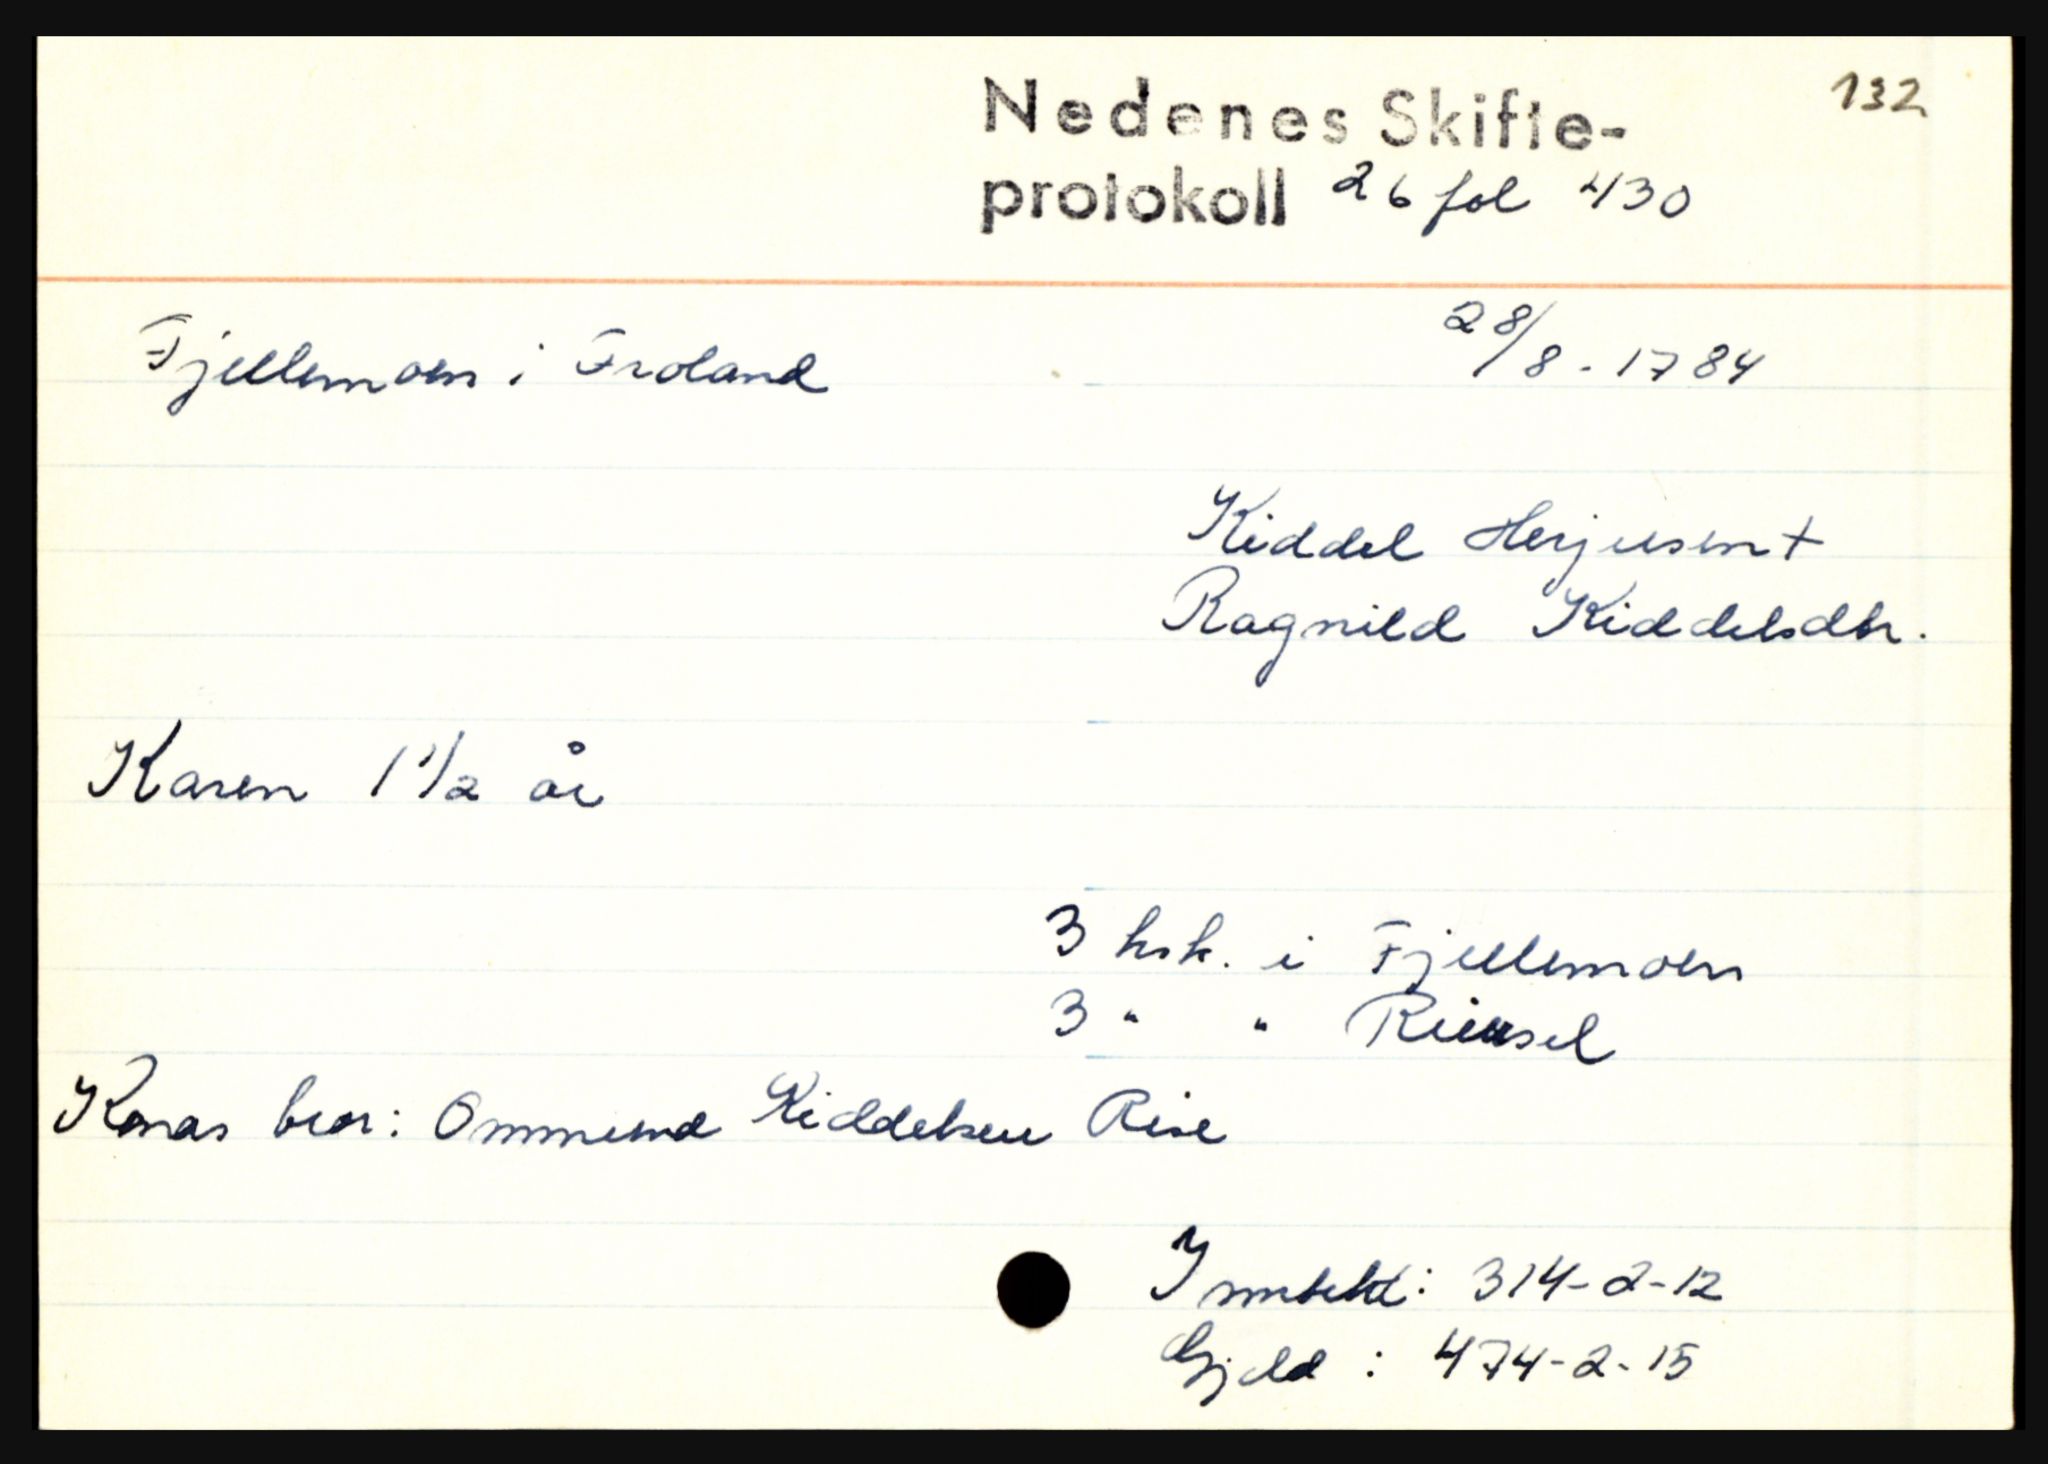 132
Nedenes Skifte-
protokoll 26 fol 430
Fjellemoen i Froland 28/8 - 1784
Kiddel Herjusen +
Ragnild Kiddelsdtr.
Karen 1 1/2 år
3 hsk. i Fjellemoen
3 " " Riiusel
Konas bror: Ommund Kiddelsen Rise
Inntekt: 314-2-12
Gjeld : 474-2-15